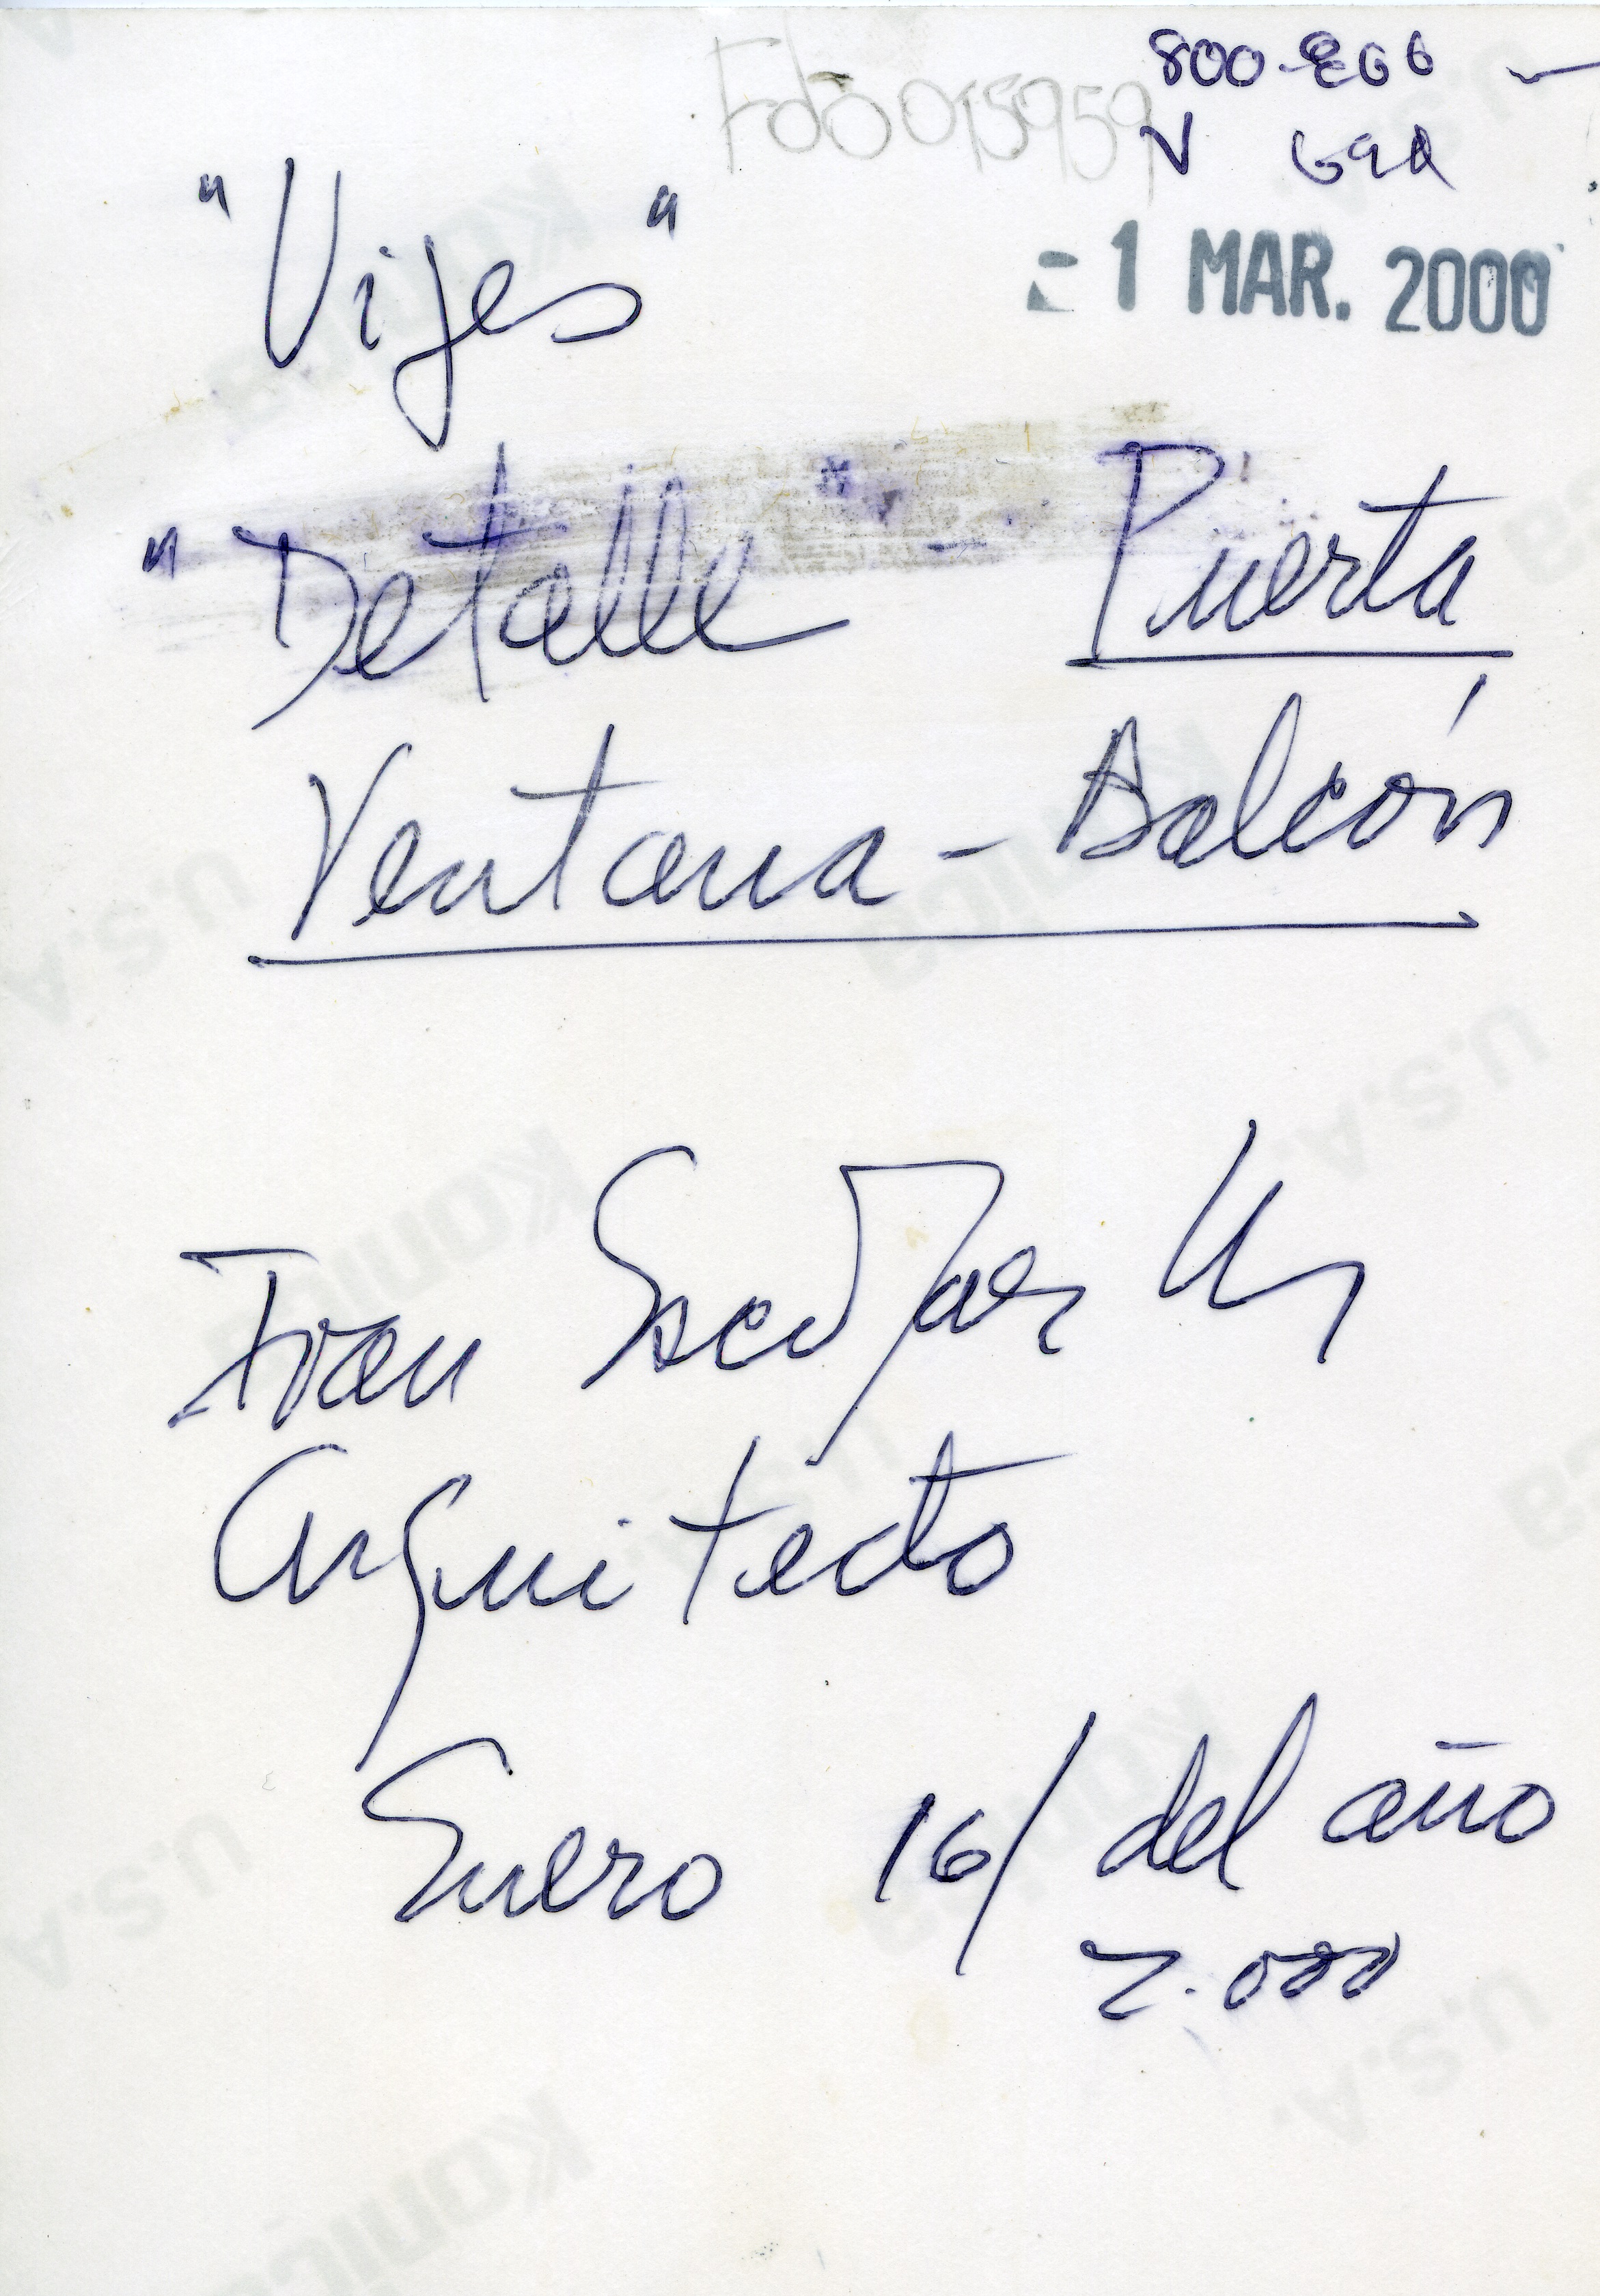 Fdo015959
800-
V
- 1 MAR. 2000
"Vijes"
"Detalle" - Puerta
Ventana - Balcón
Ivan Escobar
Arquitecto
Enero 16/ del año
2.000
Konica
U.S.A.